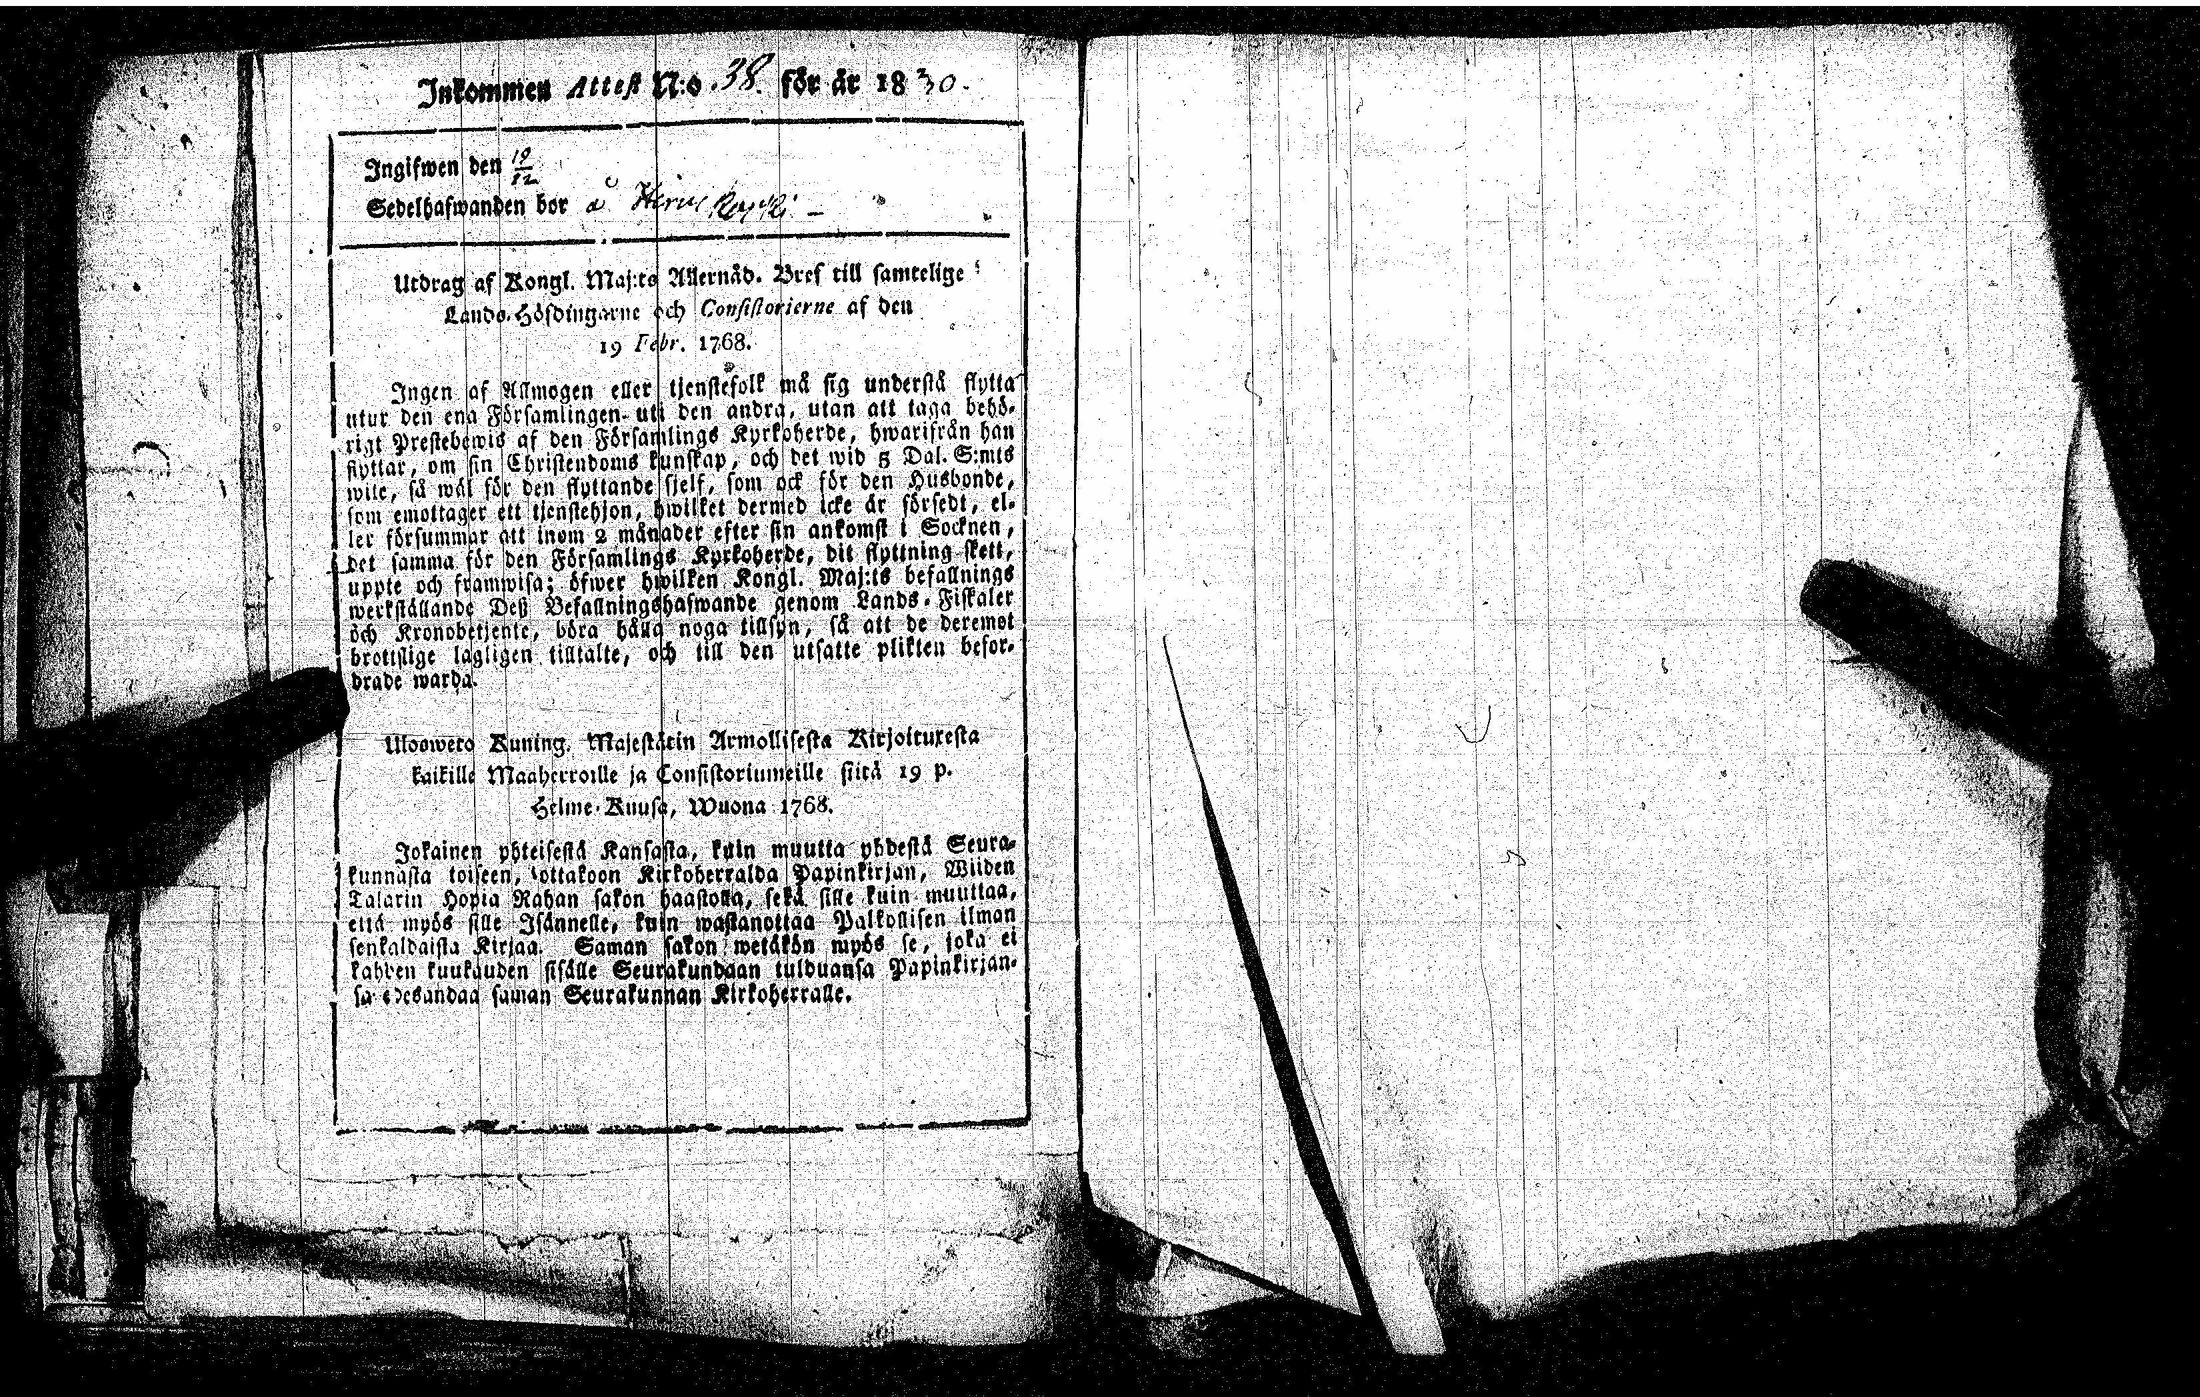 Inkommen Attest N:o 38. för år 1830.
Ingifwen den 19/12
Sedelhafwanden bor å
Utdrag af Kongl. Maj:ts Allernåd. Bref till samtelige
Lands-Höfdingarne och Consistorierne af den
19 Febr. 1768.
Ingen af Allmogen eller tjenstefolk må sig understå flytta
utur den ena Församlingen uti den andra, utan att taga behö-
rigt Prestebewis af den Församlings Kyrkoherde, hwarifrån han
flyttar, om sin Christendoms kunskap, och det wid 5 Dal. S:mts
wite, så wäl för den flyttande sjelf, som ock för den Husbonde,
som emottager ett tjenstehjon, hwilket dermed icke är försedt, el-
ler försummar att inom 2 månader efter sin ankomst i Socknen,
det samma för den Församlings Kyrkoherde, dit flyttning skett,
uppte och framwisa; öfwer hwilken Kongl. Maj:ts befallnings
werkställande Deß Befallningshafwande genom Lands-Fiskaler
och Kronobetjente, böra hålla noga tillsyn, så att de deremot
brottslige lagligen tilltalte, och till den utsatte plikten befor-
drade warda.
Ulosweto Kuning. Majestätin Armollisesta Kirjoituxesta
kaikille Maaherroille ja Consistoriumeille siitä 19 p.
Helme-Kuusa, Wuona 1768.
Jokainen yhteisestä Kansasta, kuin muutta yhdestä Seura-
kunnasta toiseen, ottakoon Kirkoherralda Papinkirjan, Wiiden
Talarin Hopia Rahan sakon haastolla, sekä sille kuin muuttaa,
että myös sille Isännelle, kuin wastanottaa Palkollisen ilman
senkaldaista Kirjaa. Saman sakon wetäkön myös se, joka ei
kahden kuukauden sisälle Seurakundaan tulduansa Papinkirjan-
sa edesandaa saman Seurakunnan Kirkoherralle.